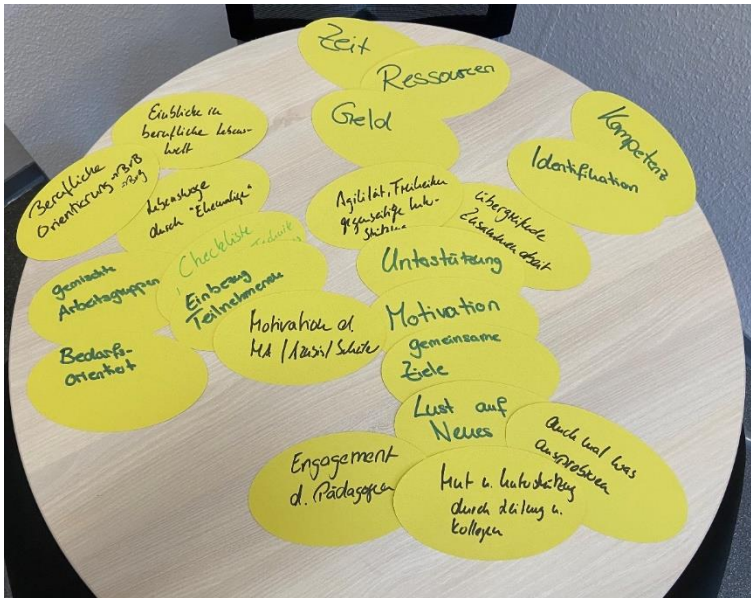 Zeit
Ressourcen
Geld
Kompetenz
Identifikation
Einblicke in
berufliche Lebens-
welt
Berufliche
Orientierung → BvB
Lebenswege
durch "Ehemalige"
Agilität, Freiheiten
gegenseitige Unter-
stützung
übergreifende
Zusammenarbeit
Checkliste Technik
Einbezug
Teilnehmende
gemischte
Arbeitsgruppen
Bedarfs-
orientiert
Unterstützung
Motivation d.
MA / Azubis / Schüler
Motivation
gemeinsame
Ziele
Lust auf
Neues
auch mal was
ausprobieren
Engagement
d. Pädagogen
Mut u. Unterstützung
durch Leitung u.
Kollegen